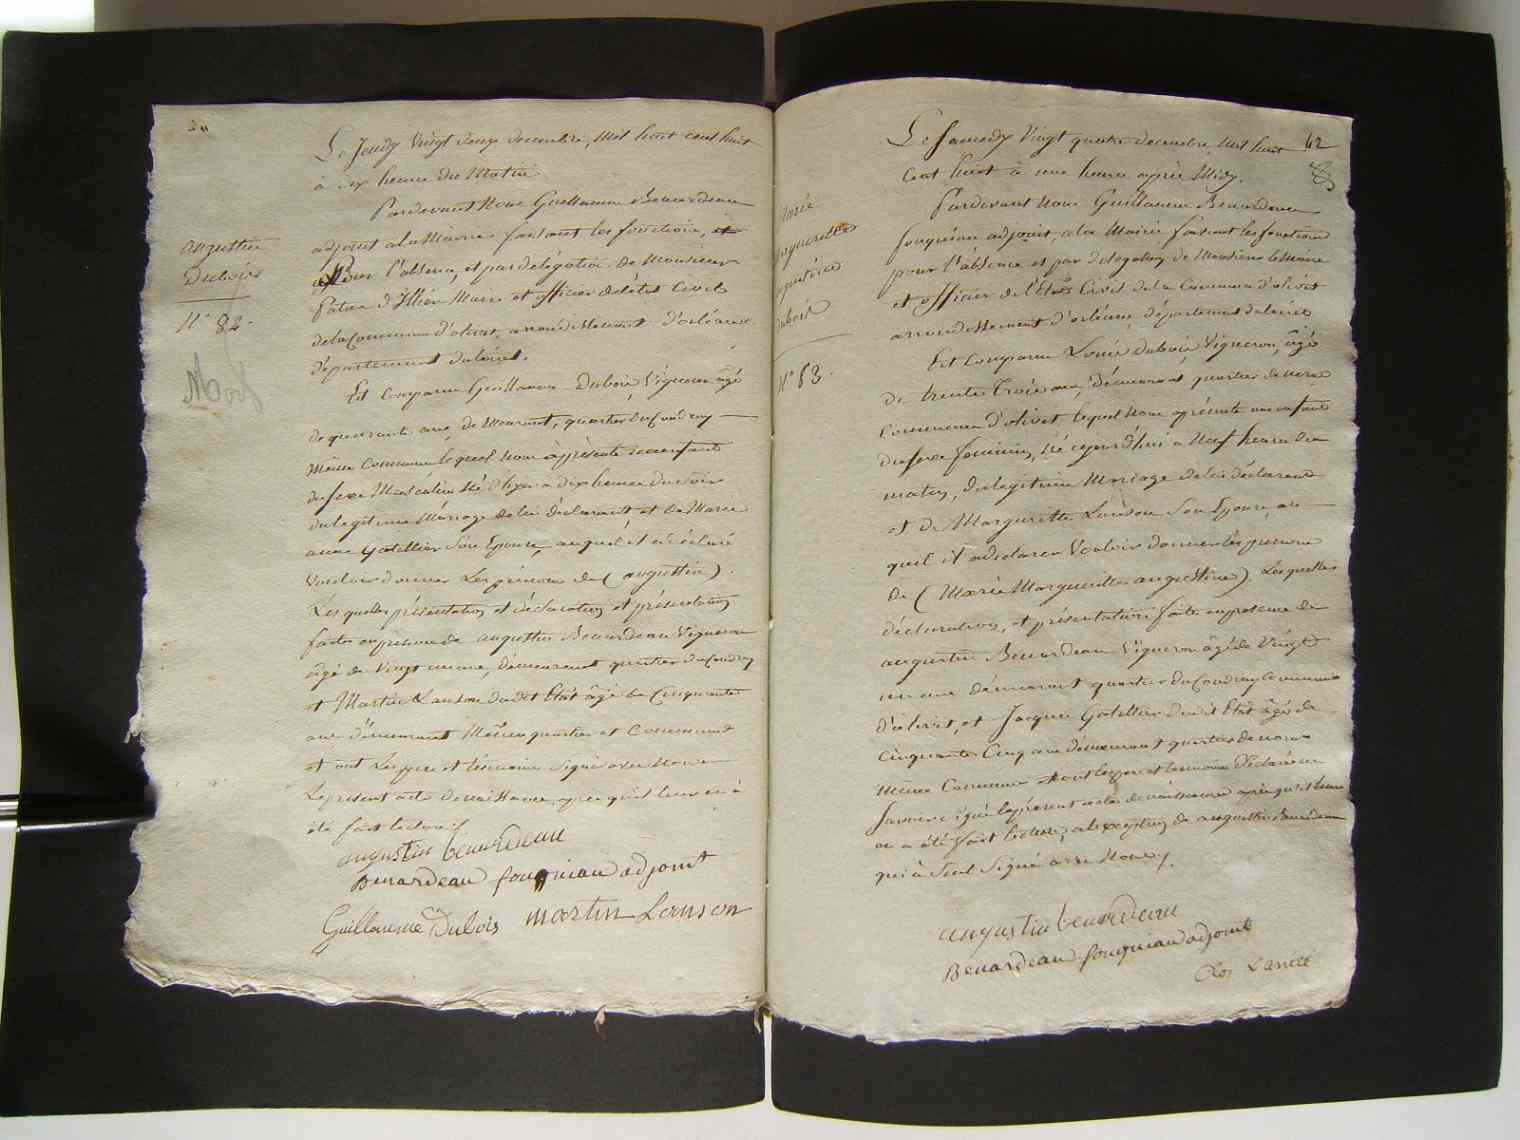 augustin
Dubois
N° 82.
Le Jeudy Vingt deux decembre, Mil huit cent huit
à dix heures du Matin
Pardevant Nous Guillaume Bénardeau
adjoint a la Mairie faisant les fonctions,
Pour l'absence, et par delegation de Monsieur
Maire et officier de l'état Civil
de la Commune d'olivet, arrondissement d'orléans
département du loiret.
Est Comparu Guillaume Dubois Vigneron âgé
de quarante ans, demeurant, quartier du Coudray
même Commune lequel Nous a présenté un enfant
du sexe Masculin Né d'hyer a dix heures du soir
du legitime Mariage de lui déclarant et de Marie
anne Gatellier Son Epouse, auquel il a déclaré
Vouloir donner Les prénoms de (augustin).
Les quelles présentation et déclaration et présentation
faites en présence de augustin Benardeau Vigneron
âgé de Vingt un ans, demeurant quartier du Coudray
et Martin Lanson dudit Etat âgé de Cinquante
ans demeurant Même quartier et Commune
et ont Les pere et témoins signé avec Nous
Le present acte de naissance, apres qu'il leur en à
été fait lecture
augustin benardeau
Benardeau fougniau adjoint
Guillaume Dubois martin Lanson
62
Marie
Marguerite
augustine
dubois
N° 83.
Le Samedy Vingt quatre decembre, Mil huit
Cent huit à une heure après Midy.
Pardevant Nous Guillaume Benardeau
fougniau adjoint, a la Mairie faisant les fonctions
pour l'absence et par delegation de Monsieur le Maire
et officier de l'Etat Civil de la Commune d'olivet
arrondissement d'orléans, département du loiret
Est Comparu Louis dubois Vigneron, âgé
de trente Trois ans, demeurant quartier de
Commune d'olivet, lequel Nous a présenté un enfant
du sexe feminin, Né cejourd'hui a Neuf heures du
matin, du legitime Mariage de lui déclarant
et de Margueritte Lanson Son Epouse, au
quel il a déclaré Vouloir donner les prénoms
de (Marie Margueritte augustine). Lesquelles
déclaration, et présentation faite en presence de
augustin Benardeau Vigneron âgé de Vingt
un ans demeurant quartier du Coudray Commune
d'olivet, et Jacques Gatellier dudit Etat âgé de
Cinquante Cinq ans demeurant quartier de
même Commune et ont les pere et temoins déclaré ne
Savoir signé le présent acte de naissance après qu'il leur
en a été fait lecture, a l'exception de augustin Benardeau
qui à Seul Signé avec Nous.
augustin benardeau
Benardeau fougniau adjoint